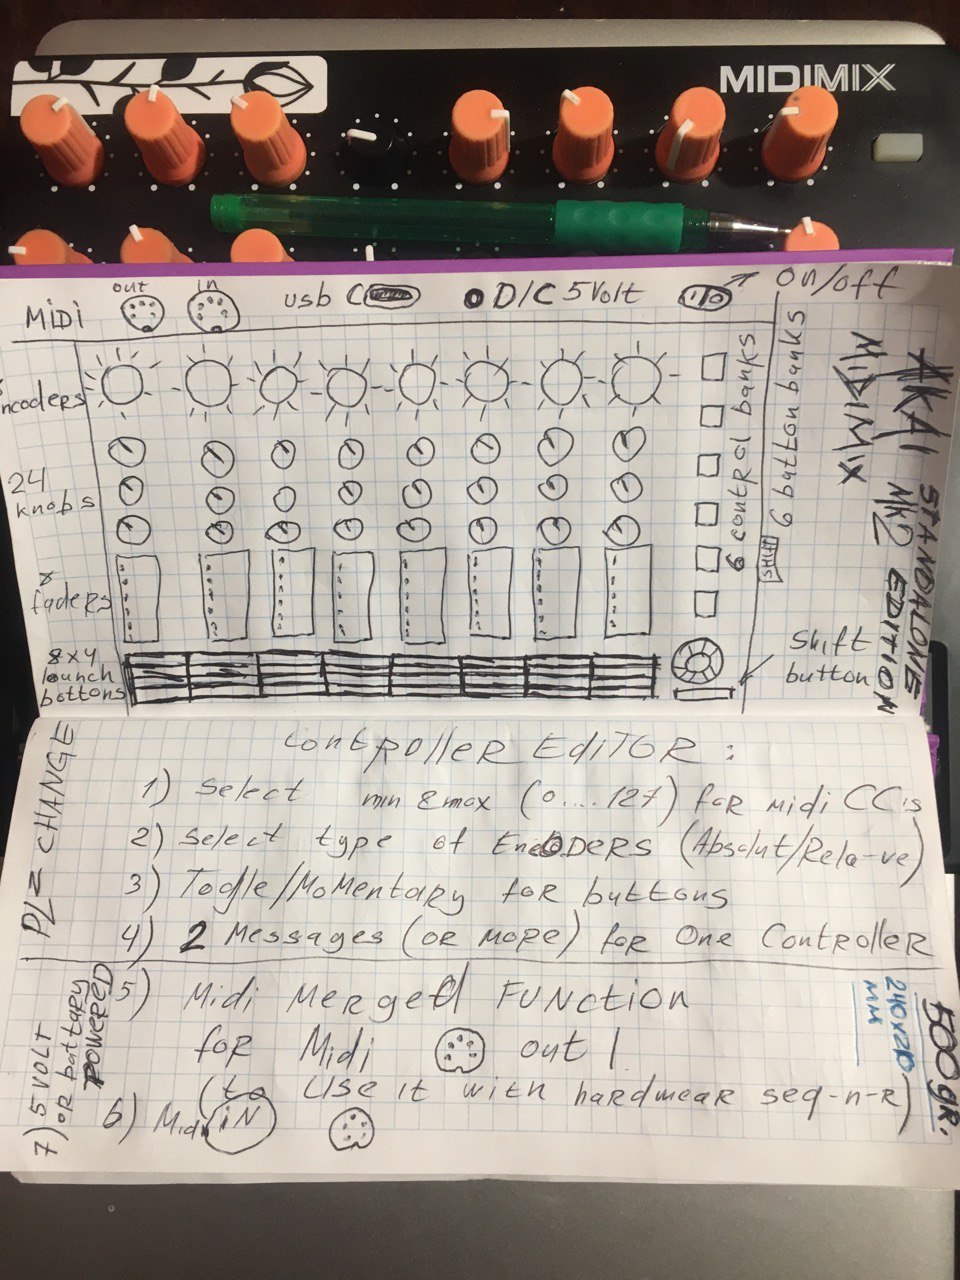 MIDIMIX
MiDi
out
in
usb C
D/C 5Volt
1/0
on/off
ncoders
24
knobs
faders
8x4
launch
bottons
6 control banks
6 button banks
Shift
Shift
button
AKAI
MiDiMix
Mk2
STANDALONE
EDITION
PLZ CHANGE
Controller EDiTOR :
1) Select min & max (0....127) for midi CCis
2) Select type of EncODERS (Absolut/Rela-ve)
3) Togle/MoMentary for buttons
4) 2 Messages (or more) for One Controller
5) Midi Merged FUNction
for Midi out !
(to Use it with hardwear seq-n-r)
6) Midi iN
7) 5 VOLT
OR battary
POWERED
240x20
MM
500gr.